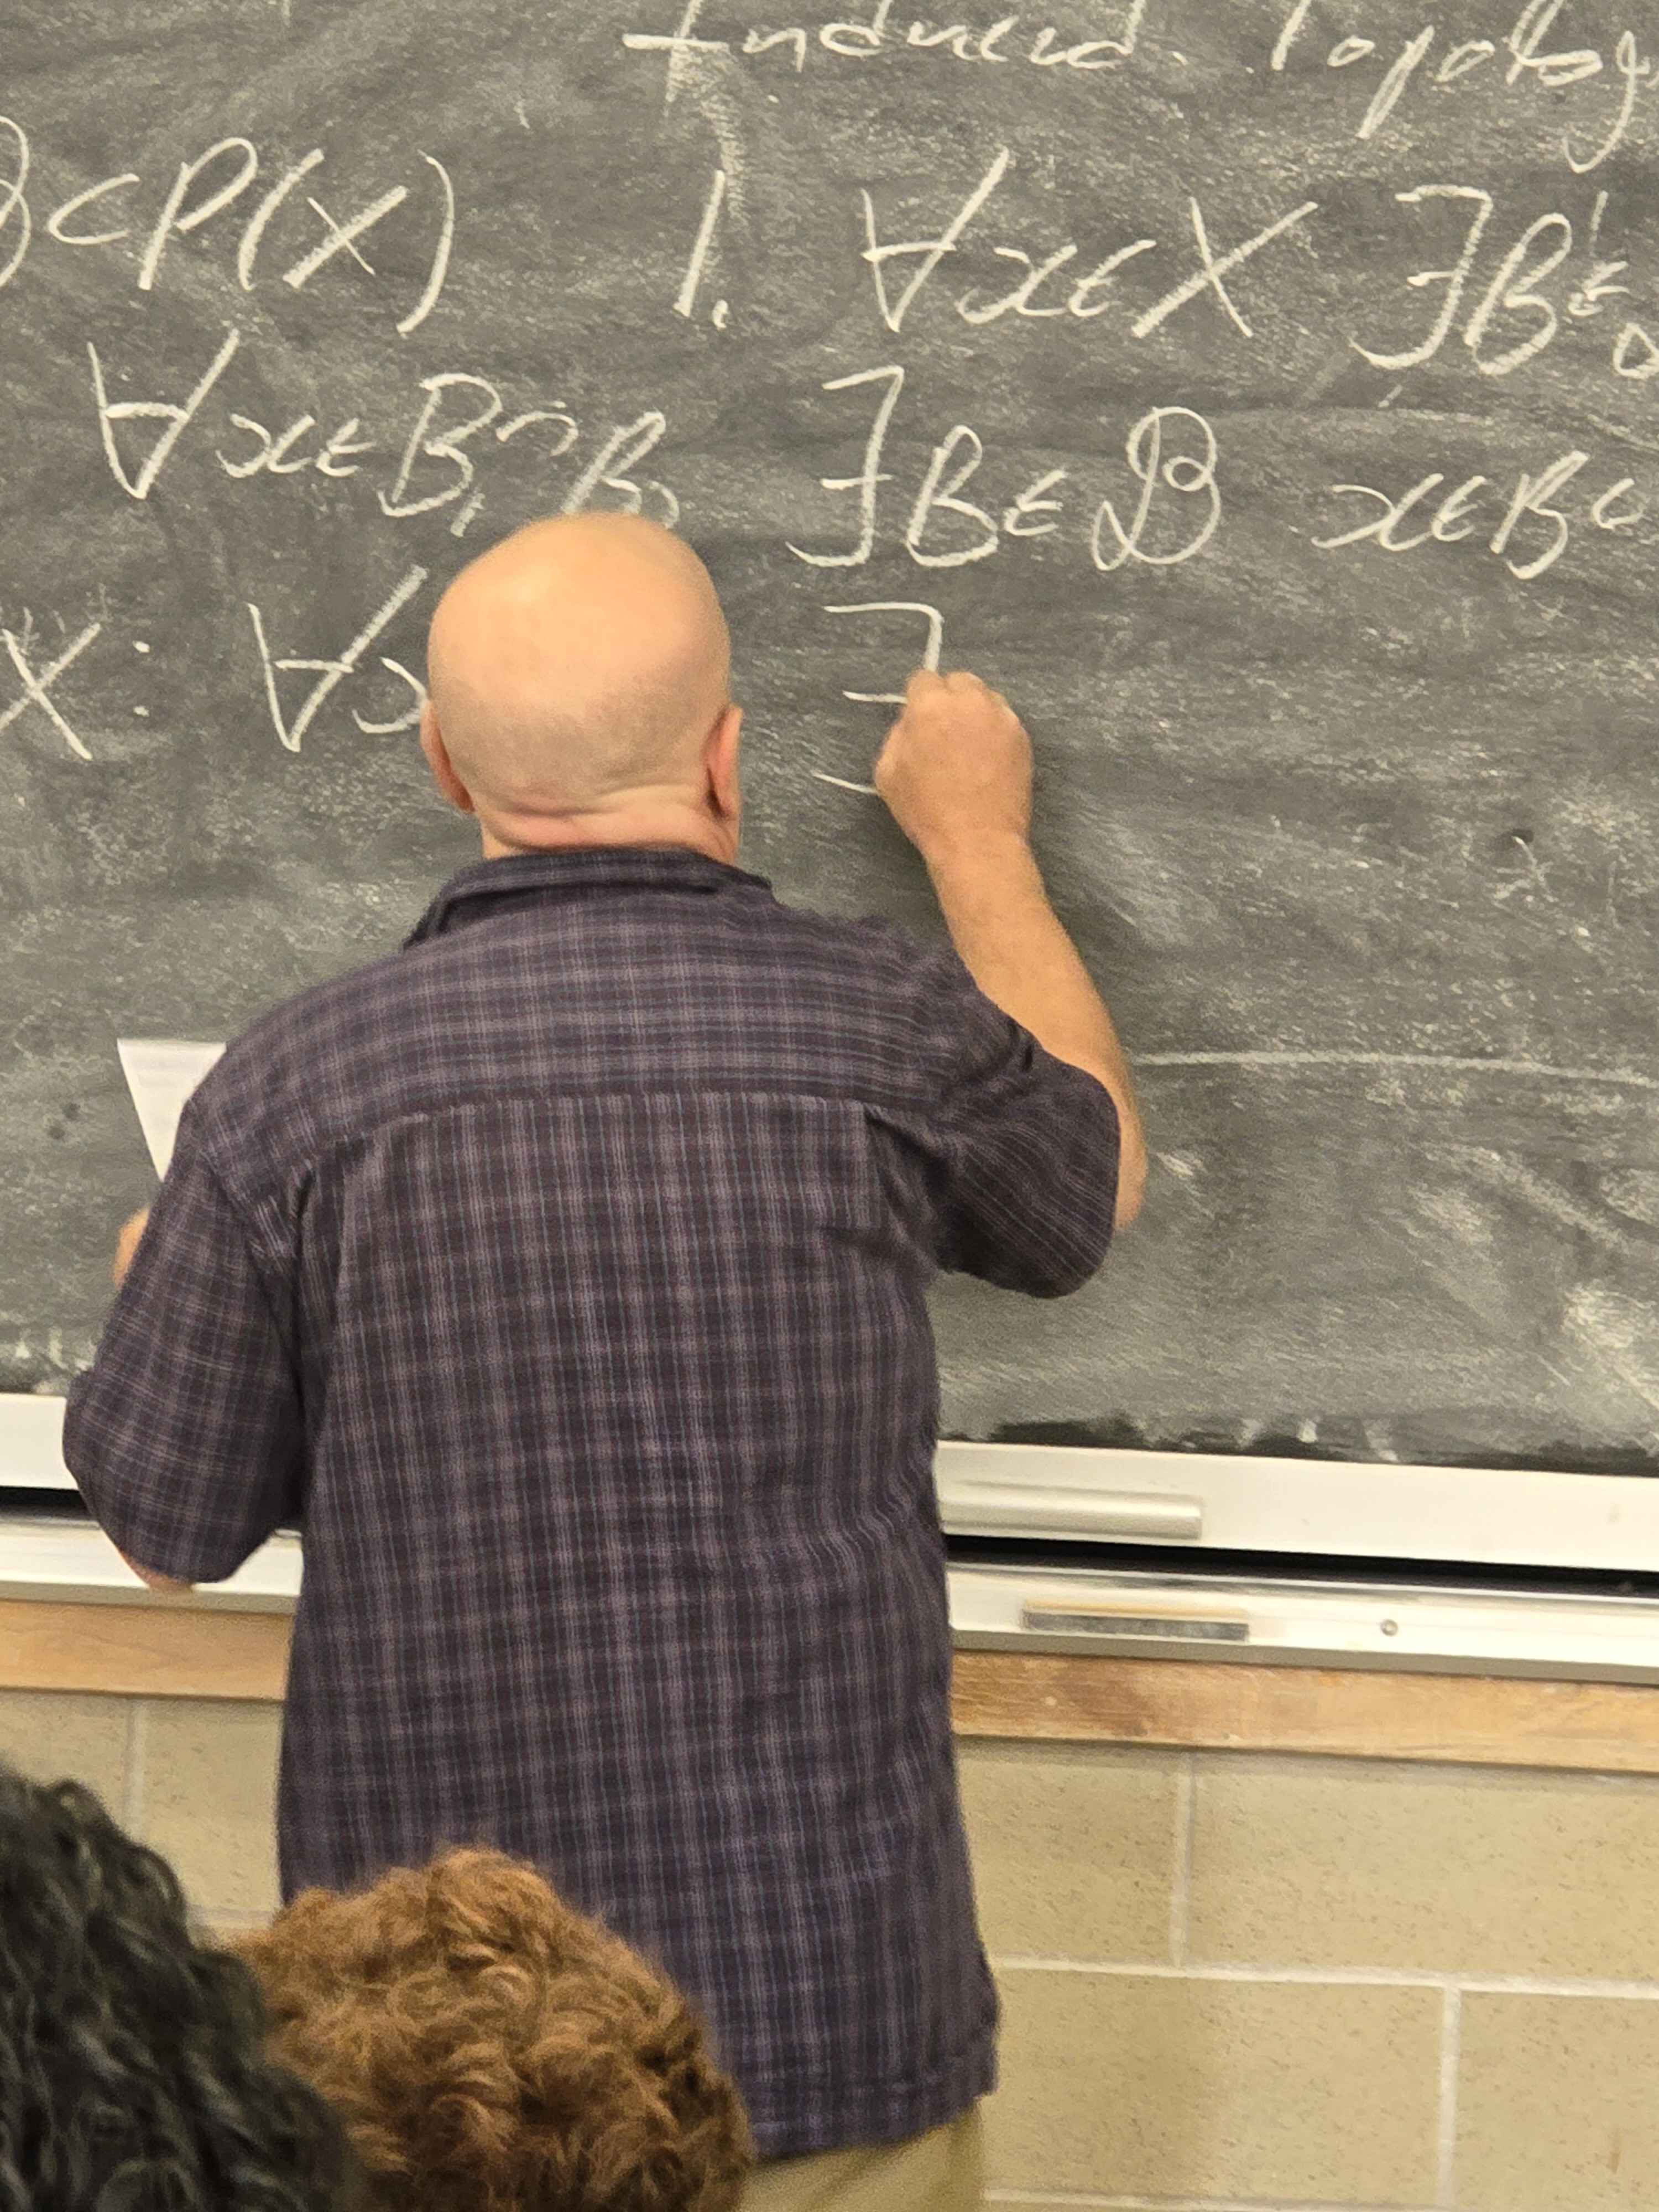 Induced Topology
ℬ ⊂ P(X) 1. ∀x∈X ∃B∈
∀x∈B₁∩B₂ ∃B∈ℬ x∈B⊂
X: ∀x ∃